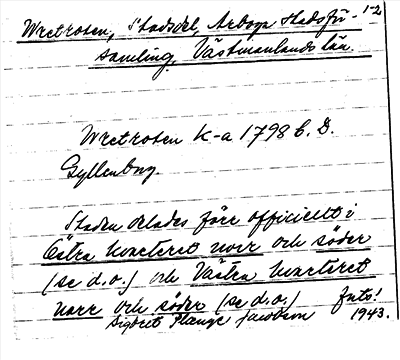 1-2
Wretroten, Stadsdel, Arboga Stadsför-
samling, Västmanlands län.
Wretroten K-a 1798 f. D.
Gyllenborg.
Staden delades förr officiellt i
Östra kvarteret norr och söder
(se d.o.) och Västra kvarteret
norr och söder (se d.o.) forts!
Sigbrit Plange Jacobson 1943.